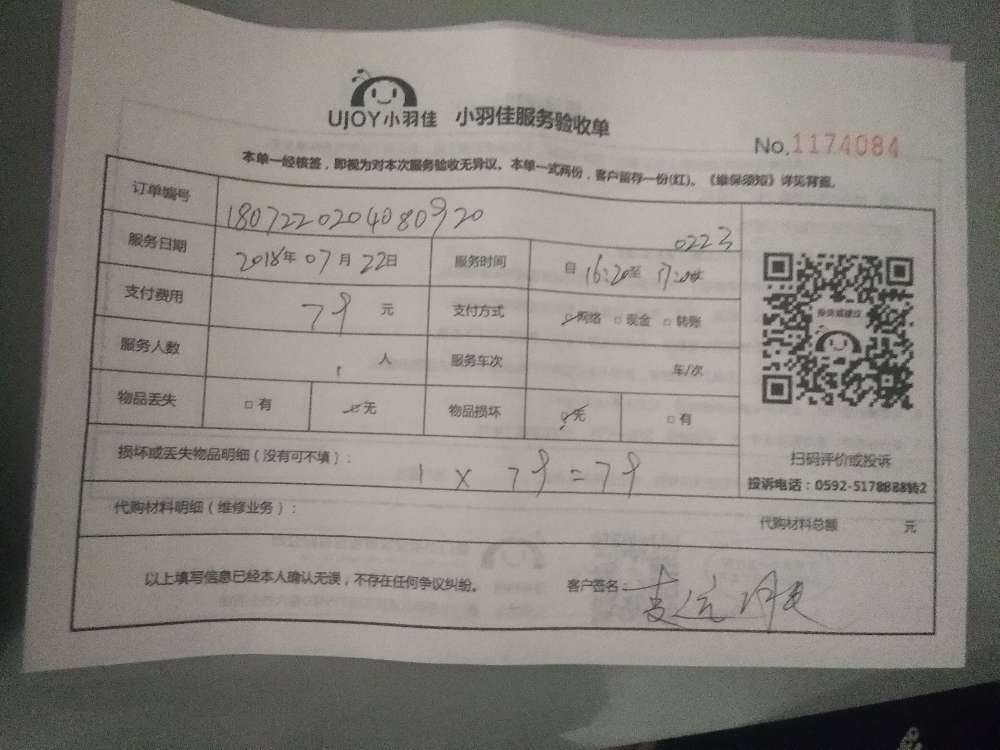 UJOY小羽佳 小羽佳服务验收单
No.1174084
本单一经核签，即视为对本次服务验收无异议。本单一式两份，客户留存一份(红)。《维保须知》详见背面。
订单编号 1807220204080920
0223
服务日期 2018年 07月 22日 服务时间 自 16:20至 17:20止
支付费用 79 元 支付方式 ☑网络 □现金 □转账
服务人数 1 人 服务车次 车/次
物品丢失 □有 ☑无 物品损坏 ☑无 □有
损坏或丢失物品明细（没有可不填）：
1 × 79 = 79
扫码评价或投诉
投诉电话：0592-5178888转2
代购材料明细（维修业务）：
代购材料总额 元
以上填写信息已经本人确认无误，不存在任何争议纠纷。 客户签名：